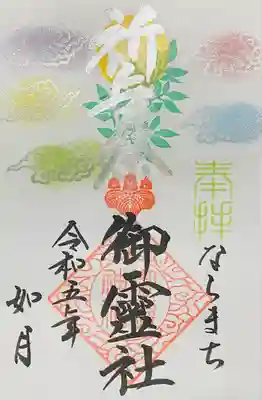 奉拝
ならまち
御靈社
令和五年
如月